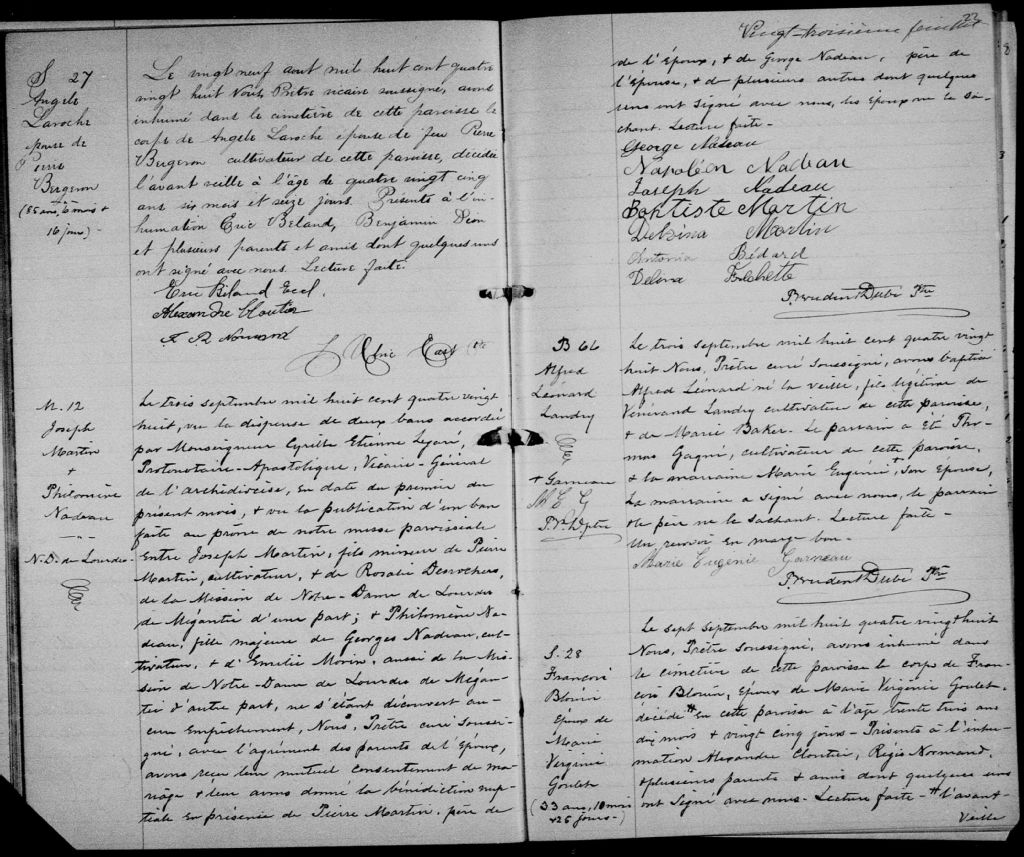 S 27
Angele
Laroche
epouse de
Pierre
Bergeron
(85 ans, 6 mois +
16 jours) -
Le vingt neuf aout mil huit cent quatre
vingt huit Nous Prêtre vicaire soussigné, avons
inhumé dans le cimetière de cette paroisse le
corps de Angele Laroche epouse de feu Pierre
Bergeron cultivateur de cette paroisse, décédée
l'avant veille à l'âge de quatre vingt cinq
ans six mois et seize jours. Présents à l'in-
humation Eric Béland, Benjamin Dion
et plusieurs parents et amis dont quelques uns
ont signé avec nous. Lecture faite.
Eric Béland Eccl.
Alexandre Cloutier
Ptre
M. 12
Joseph
Martin
+
Philomène
Nadeau
N.D. de Lourdes
Le trois septembre mil huit cent quatre vingt
huit, vu la dispense de deux bans accordée
par Monseigneur Cyrille Etienne Legaré,
Protonotaire-Apostolique, Vicaire-Général
de l'archidiocèse, en date du premier du
présent mois, + vu la publication d'un ban
faite au prône de notre messe paroissiale
Entre Joseph Martin, fils mineur de Pierre
Martin, cultivateur, + de Rosalie Desrochers,
de la Mission de Notre-Dame de Lourdes
de Mégantic d'une part; + Philomène Na-
deau, fille majeure de Georges Nadeau, cul-
tivateur, + d'Emélie Morin, aussi de la Mis-
sion de Notre-Dame de Lourdes de Mégan-
tic d'autre part, ne s'étant découvert au-
cun Empêchement, Nous, Prêtre curé Soussi-
gné, avec l'agrément des parents de l'Epoux,
avons reçu leur mutuel consentement de ma-
riage + leur avons donné la bénédiction nup-
tiale en présence de Pierre Martin, père de
22
Vingt-troisième feuillet
de l'Epoux, + de George Nadeau, père de
l'Epouse, + de plusieurs autres dont quelques
uns ont signé avec nous, les Epoux ne le sa-
chant. Lecture faite -
George Nadeau
Napoléon Nadeau
Joseph Nadeau
Baptiste Martin
Delvina Martin
Antonia Bédard
Delina Frechette
Prudent Dubé Ptre
B 66
Alfred
Léonard
Landry
+ Garneau
M E G
P. D. ptre
Le trois septembre mil huit cent quatre vingt
huit Nous, Prêtre curé Soussigné, avons baptisé
Alfred Léonard né la veille, fils légitime de
Vénérand Landry cultivateur de cette paroisse,
+ de Marie Baker. Le parrain a Eté Tho-
mas Gagné, cultivateur de cette paroisse,
+ la marraine Marie Eugénie + Son Epouse,
La marraine a signé avec nous, le parrain
+ le père ne le sachant. Lecture faite -
Un renvoi En marge bon -
Marie Eugenie Garneau
Prudent Dubé Ptre
S. 28
François
Blouin
Epoux de
Marie
Virginie
Goulet
(33 ans, 10 mois
+ 25 jours -)
Le sept septembre mil huit quatre vingt huit
Nous, Prêtre Soussigné, avons inhumé dans
le cimetière de cette paroisse le corps de Fran-
çois Blouin, Epoux de Marie Virginie Goulet,
décédé # En cette paroisse à l'âge trente trois ans
dix mois + vingt cinq jours - Présents à l'inhu-
mation Alexandre Cloutier, Régis Normand,
+ plusieurs parents + amis dont quelques uns
ont Signé avec nous - Lecture faite - # l'avant-
Veille